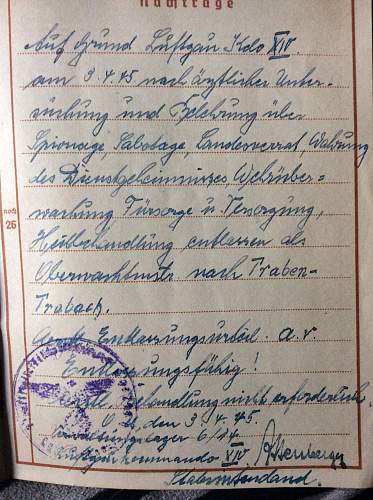 Nachträge
Auf Grund Luftgau Kdo XIV
am 3.4.45 nach ärztlicher Unter-
suchung und Belehrung über
Spionage, Sabotage, Landesverrat, Wahrung
des Dienstgeheimnisses Wehrüber-
wachung Fürsorge u. Versorgung,
Heilbehandlung entlassen als
Oberwachtmstr. nach Traben-
Trabach.
noch
26
Entlassungsurteil: a.v.
Entlassungsfähig!
Behandlung nicht erforderlich.
O.U., den 3.4.45.
6/14
Luftgaukommando XIV